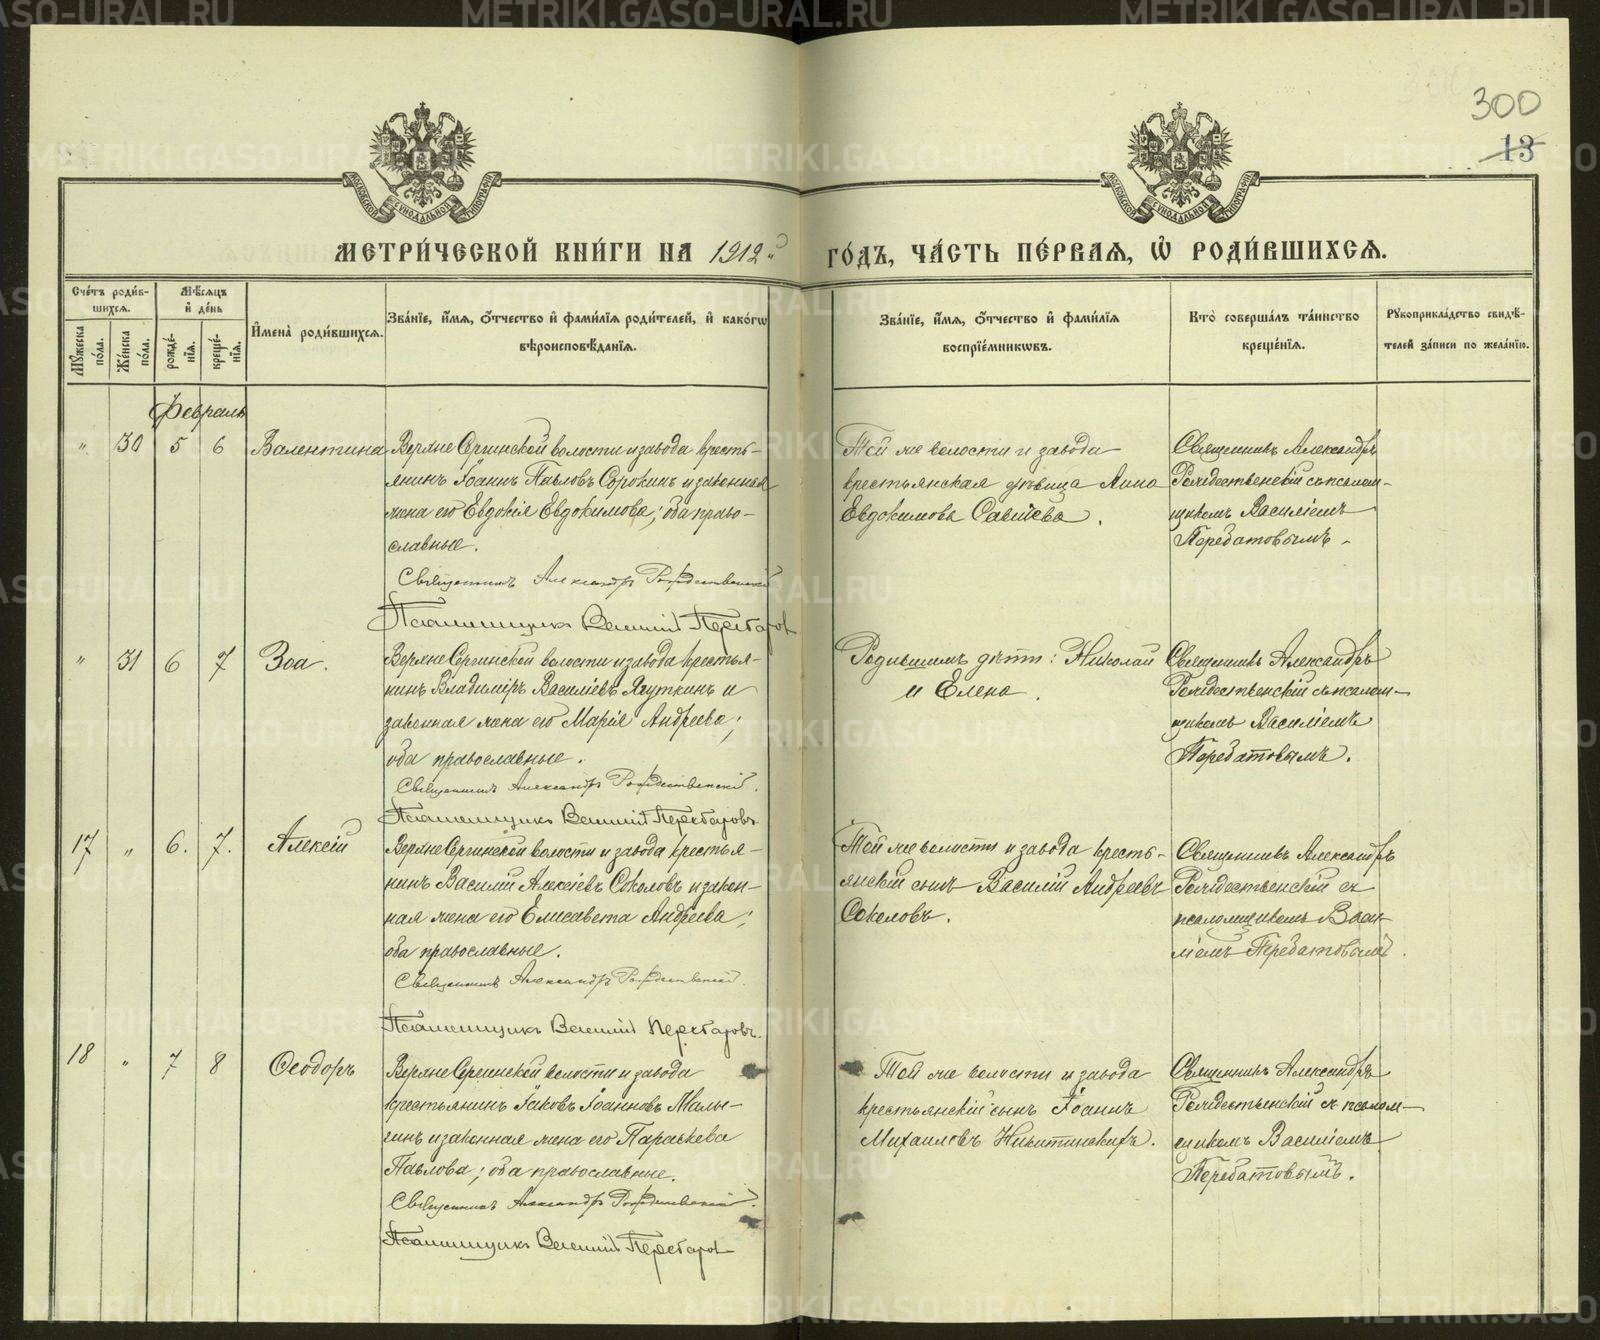 300
13
МЕТРИ́ЧЕСКОЙ КНИ́ГИ НА 1912й ГО́ДЪ, ЧА́СТЬ ПЕ́РВАЯ, Ѡ РОДИ́ВШИХСЯ.
Сче́тъ роди́в-
шихся.
Мꙋ́жеска по́ла.
Же́нска по́ла.
Мѣ́сяцъ
и҆ де́нь
рожде́нїя.
креще́нїя.
И҆мена̀ роди́вшихся.
Зва́нїе, и҆́мя, ѻ҆́тчество и҆ фами́лїя роди́телей, и҆ како́гѡ
вѣроисповѣ́данїя.
Зва́нїе, и҆́мя, ѻ҆́тчество и҆ фами́лїя
воспрїе́мникѡвъ.
Кто̀ соверша́лъ та́инство
креще́нїя.
Рꙋкоприкла́дство свидѣ́-
телей за́писи по жела́нїю.
Февраль
" 30 5 6 Валентина
Верхне Сергинской волости и завода кресть-
янинъ Іоаннъ Павловъ Сорокинъ и законная
жена его Евдокія Евдокимова; оба право-
славные.
Священникъ Александръ Рождественскій
Псаломщикъ Василій Перебатов
Той же волости и завода
крестьянская дѣвица Анна
Евдокимова Савичева.
Священникъ Александръ
Рождественскій съ псалом-
щикомъ Василіемъ
Перебатовымъ.
" 31 6 7 Зоа.
Верхне Сергинской волости и завода крестья-
нинъ Владиміръ Василіевъ Ягуткинъ и
законная жена его Марія Андреева;
оба православные.
Священникъ Александръ Рождественскій.
Псаломщикъ Василій Перебатовъ
Родившимъ дѣти: Николай
и Елена.
Священникъ Александръ
Рождественскій съ псалом-
щикомъ Василіемъ
Перебатовымъ.
17 " 6. 7. Алексій
Верхне Сергинской волости и завода крестья-
нинъ Василій Алексіевъ Соколовъ и закон-
ная жена его Елисавета Андреева;
оба православные.
Священникъ Александръ Рождественскій.
Псаломщикъ Василій Перебатовъ.
Той же волости и завода кресть-
янскій сынъ Василій Андреевъ
Соколовъ.
Священникъ Александръ
Рождественскій съ
псаломщикомъ Васи-
ліемъ Перебатовымъ.
18 " 7 8 Ѳеодоръ
Верхне Сергинской волости и завода
крестьянинъ Іаковъ Іоанновъ Малы-
гинъ и законная жена его Параскева
Павлова; оба православные.
Священникъ Александръ Рождественскій.
Псаломщикъ Василій Перебатов
Той же волости и завода
крестьянскій сынъ Іоаннъ
Михаиловъ Никитиневичъ.
Священникъ Александръ
Рождественскій съ псалом-
щикомъ Василіемъ
Перебатовымъ.
METRIKI.GASO-URAL.RU